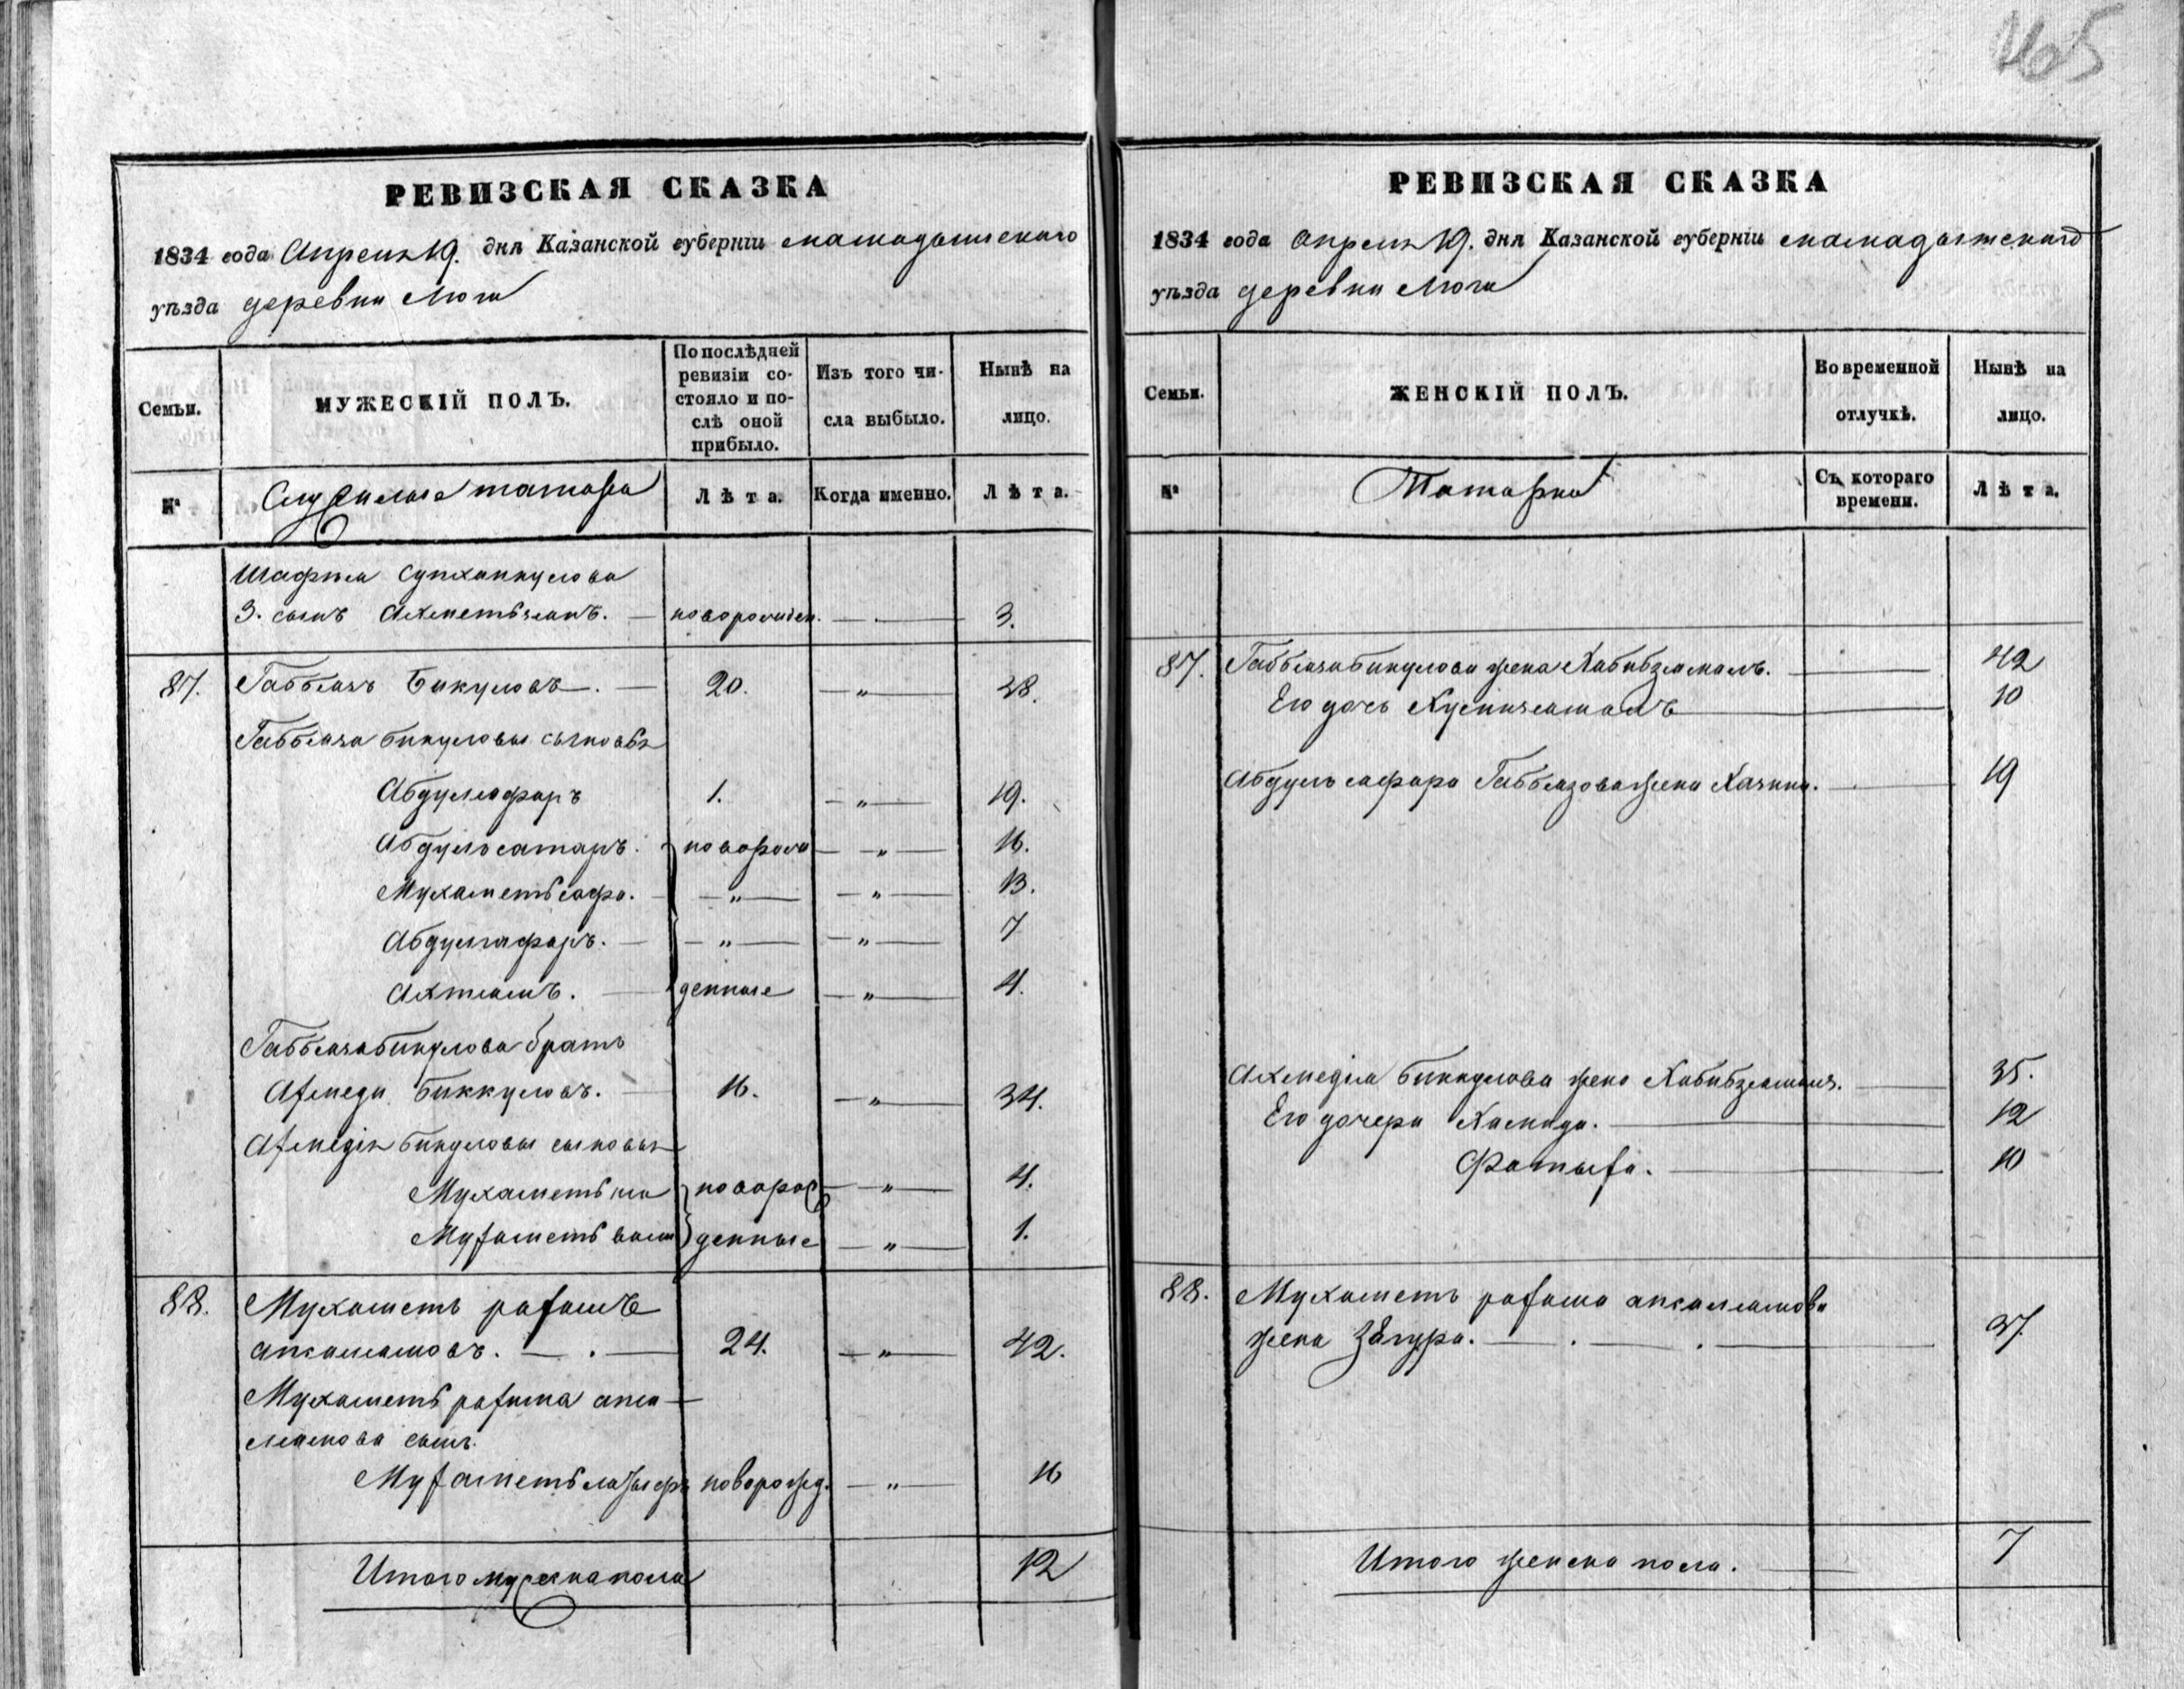 465
РЕВИЗСКАЯ СКАЗКА
1834 года Апреля 19. дня Казанской губерніи мамадышскаго
уѣзда деревни Люги
Семьи.
МУЖЕСКІЙ ПОЛЪ.
По послѣдней ревизіи состояло и послѣ оной прибыло.
Изъ того числа выбыло.
Нынѣ на лицо.
№
Служилые татара
Лѣта.
Когда именно.
Лѣта.
Шафѣя
3. сынъ Ахметьзянъ. — новорожден. — 3.
87. Габбясъ Бикуловъ. — 20. — „ — 38.
Габбяса бикуловы сыновья
Абдулзафаръ 1. — „ — 19.
Абдулсатаръ. новорож — „ — 16.
Мухаметьсафа. — „ — — „ — 13.
Абдулгафаръ. — „ — — „ — 7
Ахтямъ. — денные — „ — 4.
Габбяса бикулова братъ
Ахмеди биккуловъ. — 16. — „ — 34.
Ахмедія бикуловы сыновья
новорож — „ — 4.
Мухаметь вали денные — „ — 1.
88. Мухаметь рахимъ
апсалямовъ. — . — 24. — „ — 42.
Мухаметь рахима апса—
лямова сынъ.
Мухаметьлатыфъ новорожд. — „ — 16
Итого мужеска пола 12
РЕВИЗСКАЯ СКАЗКА
1834 года Апреля 19. дня Казанской губерніи мамадышскаго
уѣзда деревни Люги
Семьи.
ЖЕНСКІЙ ПОЛЪ.
Во временной отлучкѣ.
Нынѣ на лицо.
№
Татарки
Съ котораго времени.
Лѣта.
87. Габбяса бикулова жена Хабибзямалъ. — 42
Его дочь — 10
Габбязова жена — 19
Ахмедія биккулова жена Хабибзямалъ. — 35.
Его дочери Хамида. — 12
Фатыха. — 10
88. Мухаметь рахима апсалямова
жена Зѣгура. — . — . — 37.
Итого женска пола. — 7